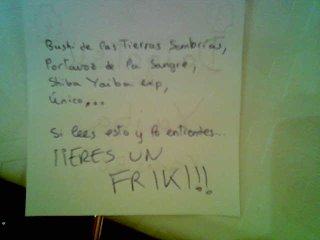 Bushi de las Tierras Sombrías,
Portavoz de la Sangre,
Shiba Yaiba exp,
Único,...
Si lees esto y lo entiendes...
¡¡¡ERES UN
FRIKI!!!